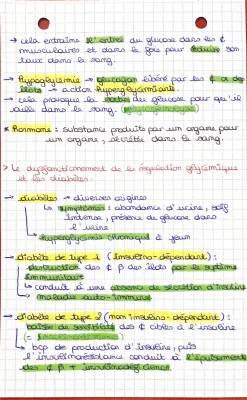 → cela entraîne l'entrée du glucose dans les ¢
musculaires et dans le foie pour réduire son
taux dans le sang.
→ Hypoglycémie → glucagon libéré par les ¢ α des
îlots → action hyperglycémiante.
→ cela provoque la sortie du glucose pour qu'il
aille dans le sang.
* Hormone : substance produite par un organe pour
un organe, sécrétée dans le sang.
> Le dysfonctionnement de la régulation glycémique
et les diabètes.
→ diabètes → diverses origines
↳ symptômes : abondance d'urine, soif
intense, présence de glucose dans
l'urine
↳ hyperglycémie chronique à jeun
→ diabète de type 1 (insulino-dépendant) :
destruction des ¢ β des îlots par le système
immunitaire
↳ conduit à une absence de sécrétion d'insuline
↳ maladie auto-immune
→ diabète de type 2 (non insulino-dépendant) :
baisse de sensibilité des ¢ cibles à l'insuline
(=
↳ bcp de production d'insuline, puis
l'insulinorésistance conduit à l'épuisement
des ¢ β + insulinodéficience